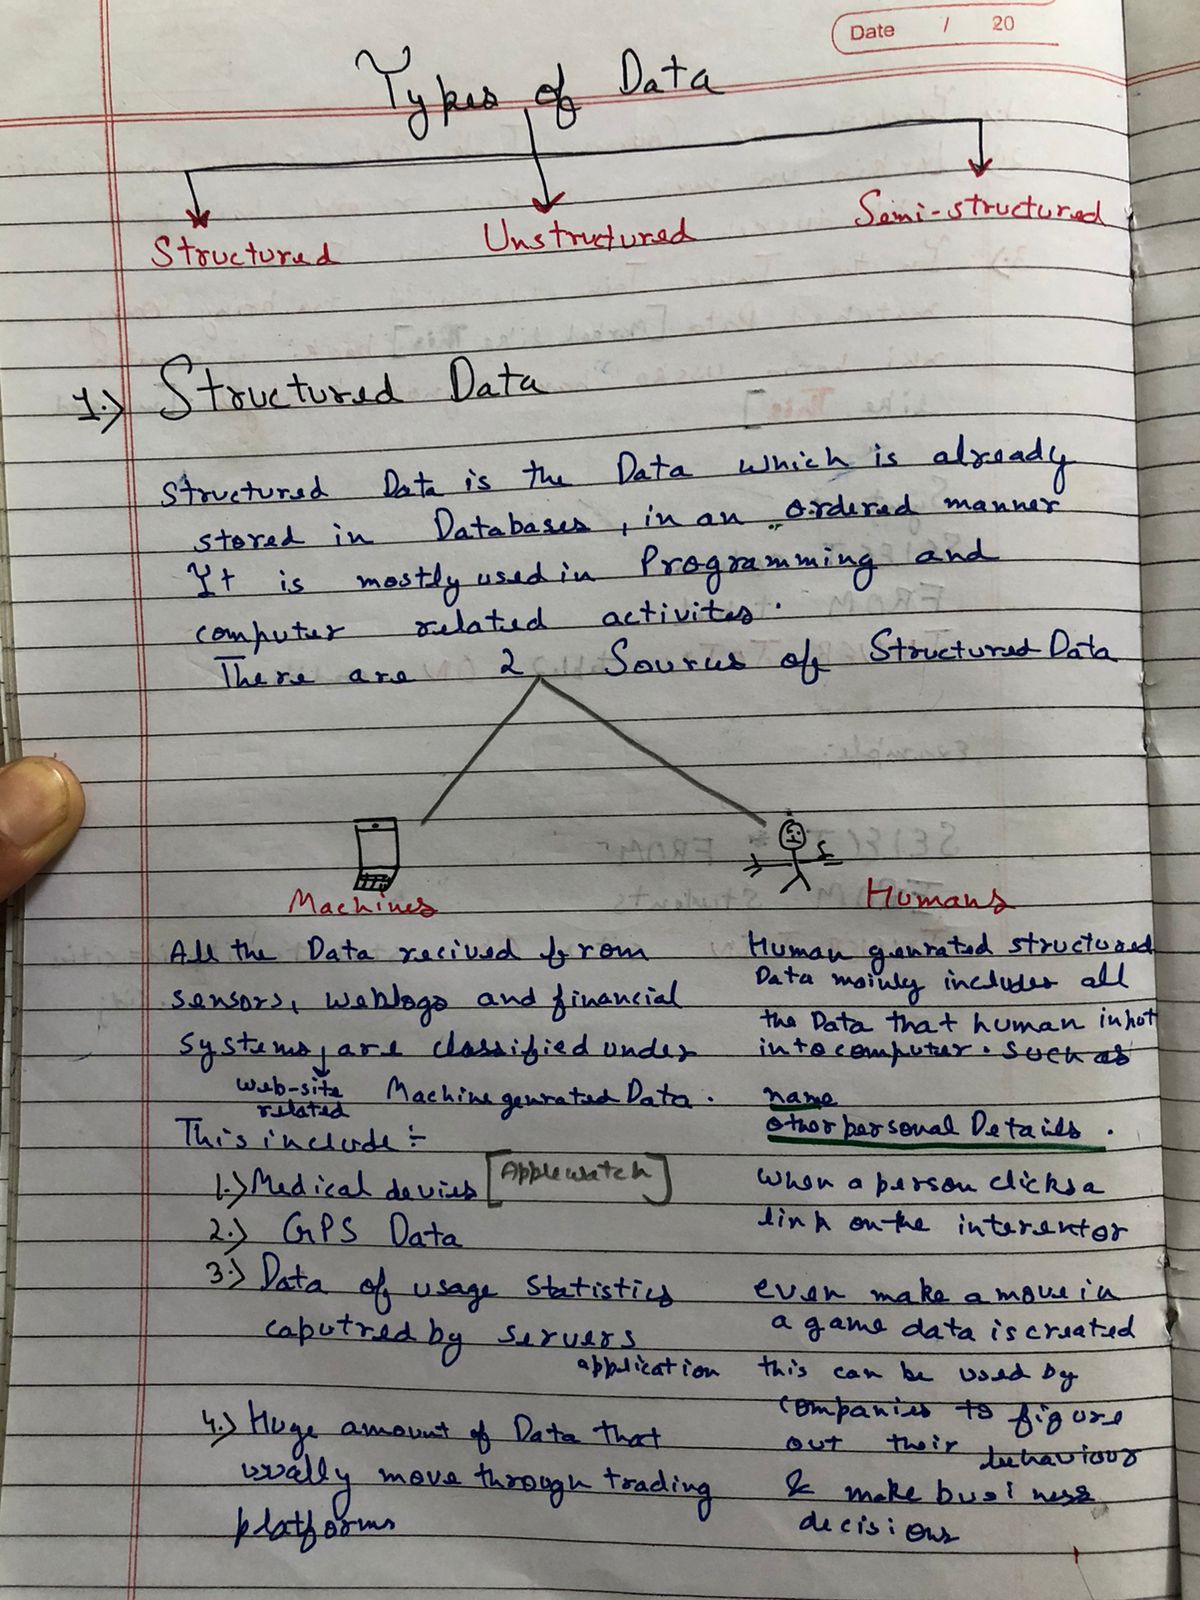 Date / 20
Types of Data
Structured Unstructured Semi-structured
1.) Structured Data
Structured Data is the Data which is already
stored in Databases, in an ordered manner
It is mostly used in Programming and
computer related activites.
There are 2 Sources of Structured Data
Machines
All the Data recived from
sensors, weblogs and financial
systems, are classified under
web-site
related
Machine genrated Data.
This include ÷
1.) Medical devies [Apple watch]
2.) GPS Data
3.) Data of usage Statistics
caputred by servers
application
4.) Huge amount of Data that
usually move through trading
platforms
Humans
Human genrated structured
Data mainly includes all
the Data that human input
into computer. such as
name
other personal Details.
when a person clicks a
link on the interent or
even make a move in
a game data is created
this can be used by
companies to figure
out their behaviour
& make business
decisions